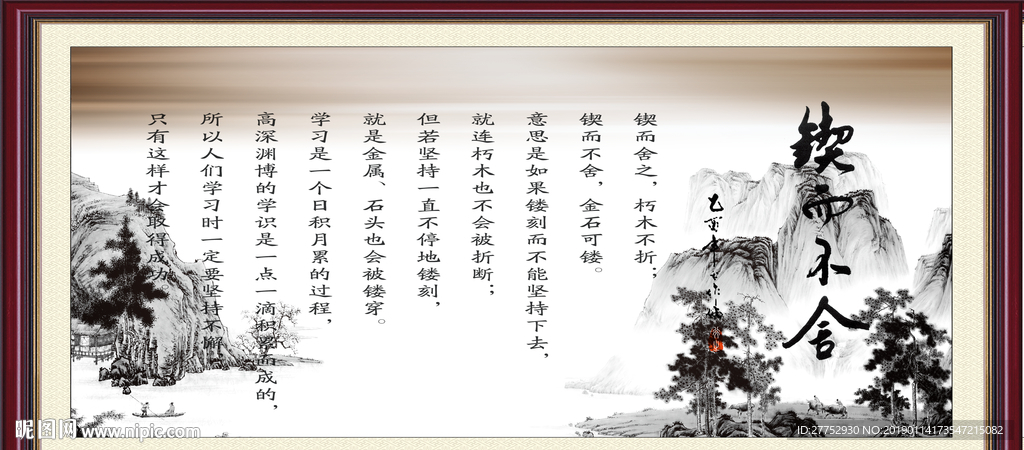 锲而不舍
锲而舍之，朽木不折；
锲而不舍，金石可镂。
意思是如果镂刻而不能坚持下去，
就连朽木也不会被折断；
但若坚持一直不停地镂刻，
就是金属、石头也会被镂穿。
学习是一个日积月累的过程，
高深渊博的学识是一点一滴积累而成的，
所以人们学习时一定要坚持不懈，
只有这样才会取得成功。
昵图网 www.nipic.com
ID:27752930 NO:20190114173547215082